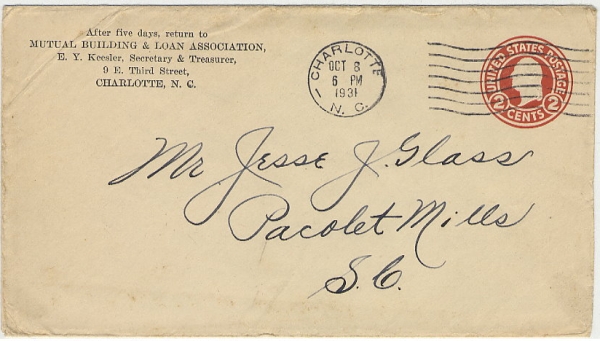 After five days, return to
MUTUAL BUILDING & LOAN ASSOCIATION,
E. Y. Keesler, Secretary & Treasurer,
9 E. Third Street,
CHARLOTTE, N. C.
CHARLOTTE
OCT 8
6 PM
1931
N. C.
1
UNITED STATES POSTAGE
2 CENTS 2
Mr. Jesse J. Glass
Pacolet Mills
S.C.